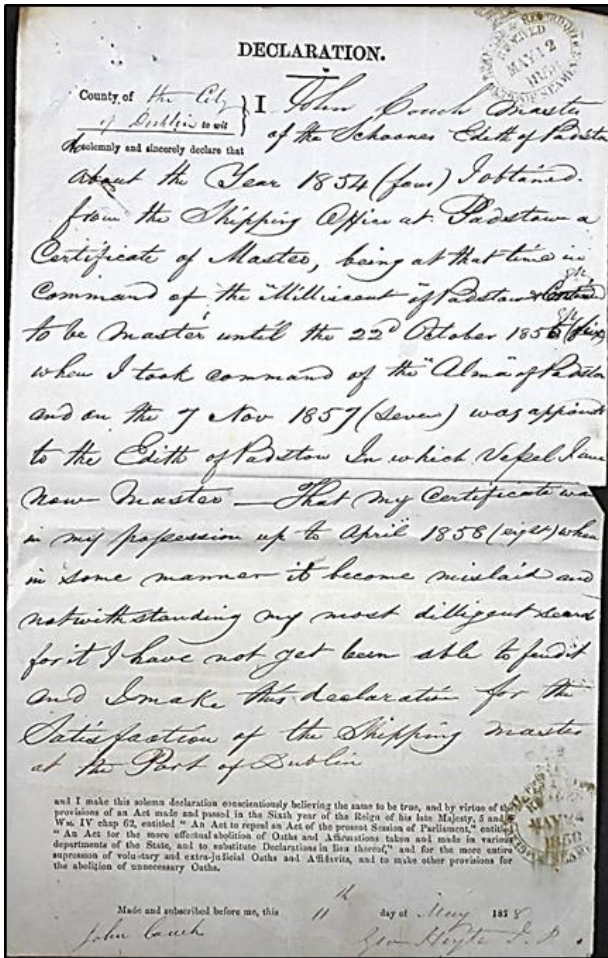 DECLARATION.
County of the City
of Dublin to wit
I John Couch Master
of the Schooner Edith of Padstow
solemnly and sincerely declare that
about the Year 1854 (four) I obtained
from the Shipping Office at Padstow a
Certificate of Master, being at that time in
Command of the "Milliscent" of Padstow
to be Master until the 22d October 1855
when I took command of the "Alma" of Padstow
and on the 7 Nov 1857 (seven) was appointed
to the Edith of Padstow In which Vessel I am
now Master — That my Certificate was
in my possession up to April 1858 (eight) when
in some manner it become mislaid and
notwithstanding my most dilligent search
for it I have not yet been able to find it
and I make this declaration for the
Satisfaction of the Shipping Master
at the Port of Dublin
and I make this solemn declaration conscientiously believing the same to be true, and by virtue of the
provisions of an Act made and passed in the Sixth year of the Reign of his late Majesty, 5 and 6
Wm. IV chap 62, entitled "An Act to repeal an Act of the present Session of Parliament," entitled
"An Act for the more effectual abolition of Oaths and Affirmations taken and made in various
departments of the State, and to substitute Declarations in lieu thereof," and for the more entire
supression of voluntary and extra-judicial Oaths and Affidavits, and to make other provisions for
the abolition of unnecessary Oaths.
Made and subscribed before me, this 11th day of May 1858
John Couch
Geo Hoyte J.P.
MAY 12
1858
MAY 24
1858